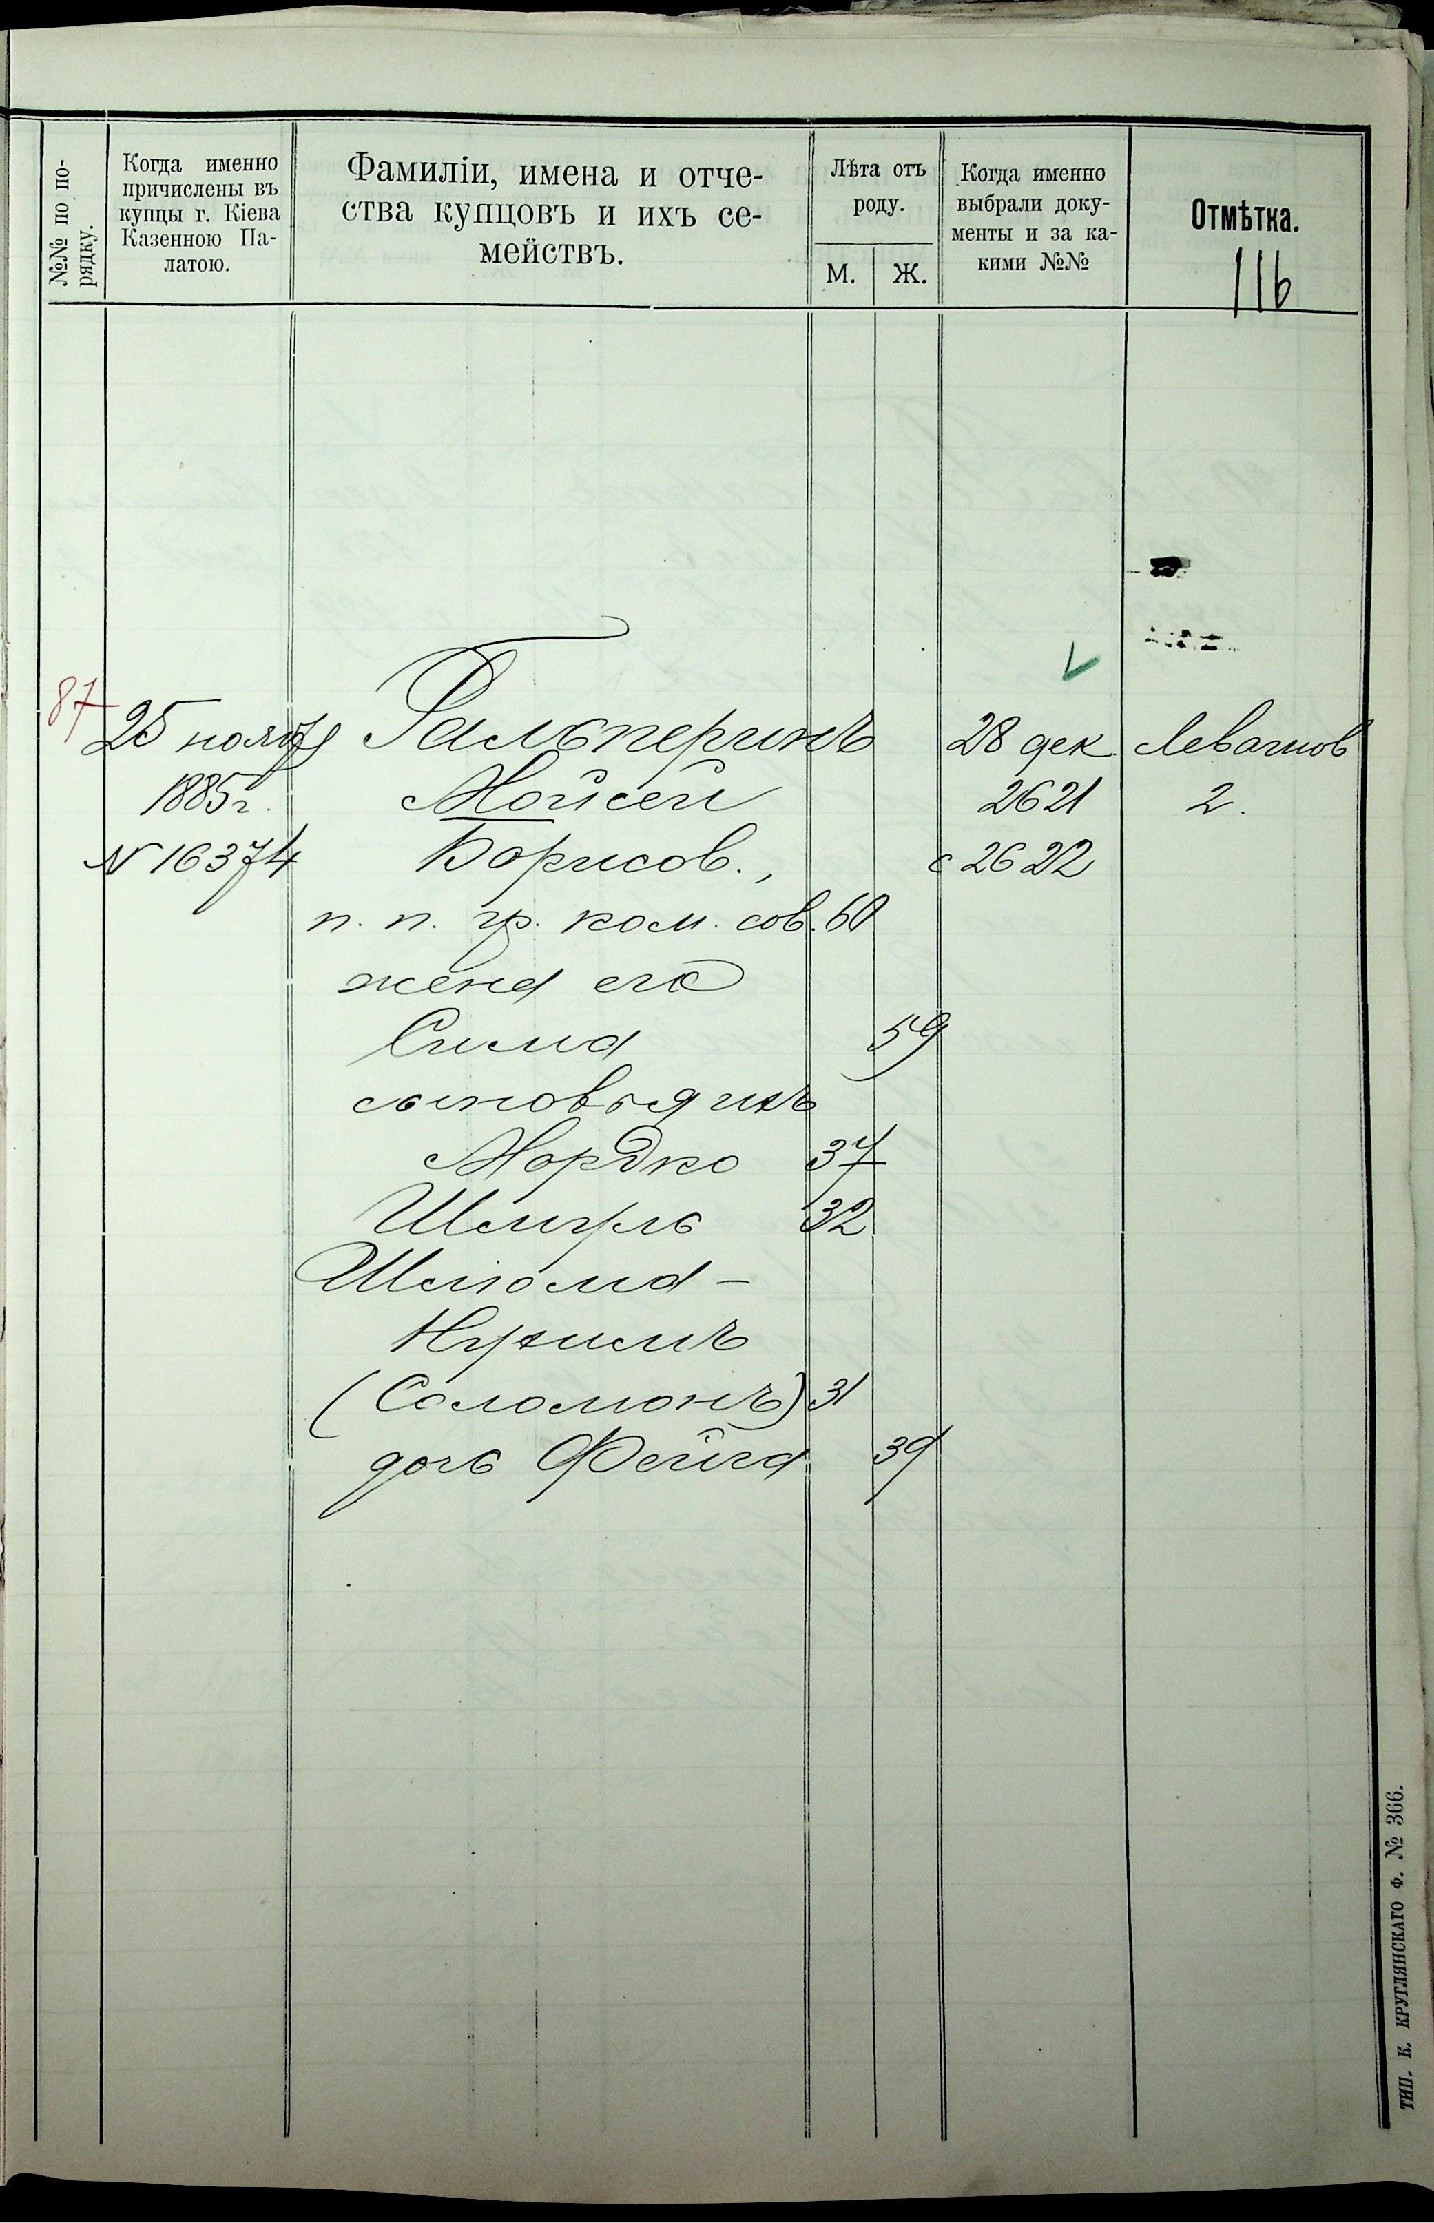 №№ по по-
рядку.
Когда именно
причислены въ
купцы г. Кіева
Казенною Па-
латою.
Фамиліи, имена и отче-
ства купцовъ и ихъ се-
мействъ.
Лѣта отъ
роду.
М. Ж.
Когда именно
выбрали доку-
менты и за ка-
кими №№
Отмѣтка.
116
87
25 ноября Гальперинъ 28 дек
1885 г. Мойсей 2621 2.
N 16374 Борисов., с 2622
п. п. гр. ком. сов. 60
жена его
Сима 59
сыновья ихъ
Мордко 37
Шмуль 32
Шліома-
Нухимъ
(Соломонъ) 31
дочь Фейга 39
ТИП. К. КРУГЛЯНСКАГО Ф. № 366.